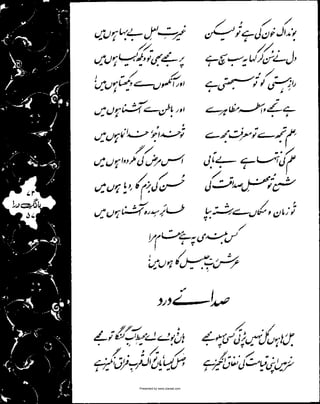 بوند اک خون کی ہے تو لیکن
غیرتِ لعلِ بے بہا ہوں میں
دل نے سن کر کہا یہ سب سچ ہے
پر مجھے بھی تو دیکھ کیا ہوں میں
رازِ ہستی کو تو سمجھتی ہے
اور آنکھوں سے دیکھتا ہوں میں!
ہے تجھے واسطہ مظاہر سے
اور باطن سے آشنا ہوں میں
علم تجھ سے تو معرفت مجھ سے
تو خدا جو، خدا نما ہوں میں
علم کی انتہا ہے بے تابی
اس مرض کی مگر دوا ہوں میں
شمع تو محفلِ صداقت کی
حسن کی بزم کا دیا ہوں میں
تو زمان و مکاں سے رشتہ بپا
طائرِ سدرہ آشنا ہوں میں
کس بلندی پہ ہے مقام مرا
عرش ربِّ جلیل کا ہوں میں!
صدائے درد
جل رہا ہوں کل نہیں پڑتی کسی پہلو مجھے
ہاں ڈبو دے اے محیطِ آبِ گنگا تو مجھے
سرزمیں اپنی قیامت کی نفاق انگیز ہے
وصل کیسا یاں تو اک قربِ فراق انگیز ہے
بانگِ درا
Presented by www.ziaraat.com